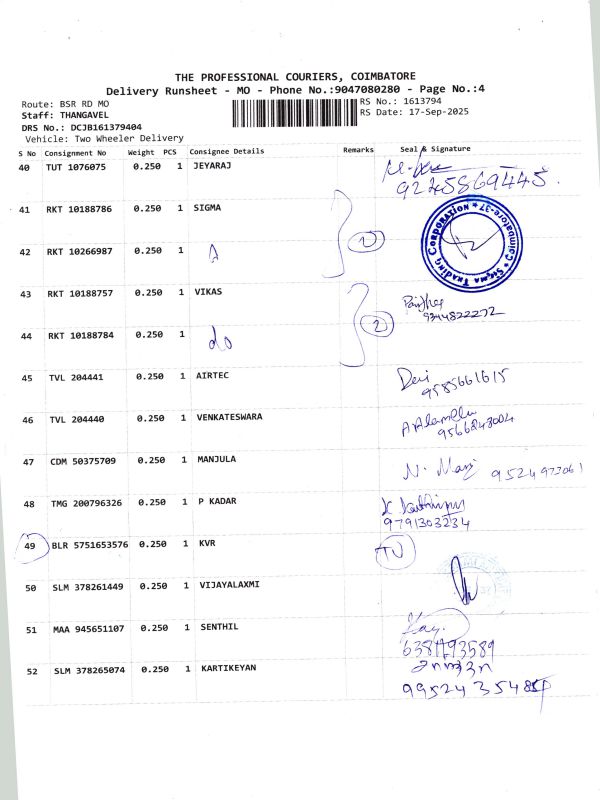 THE PROFESSIONAL COURIERS, COIMBATORE
Delivery Runsheet - MO - Phone No.:9047080280 - Page No.:4
Route: BSR RD MO
RS No.: 1613794
Staff: THANGAVEL
RS Date: 17-Sep-2025
DRS No.: DCJB161379404
Vehicle: Two Wheeler Delivery
S No Consignment No Weight PCS Consignee Details Remarks Seal & Signature
40 TUT 1076075 0.250 1 JEYARAJ
9245869445
41 RKT 10188786 0.250 1 SIGMA
SIGMA TRADING CORPORATION * Coimbatore-37 *
42 RKT 10266987 0.250 1
43 RKT 10188757 0.250 1 VIKAS
2
9344822272
44 RKT 10188784 0.250 1 do
45 TVL 204441 0.250 1 AIRTEC Devi
9585661615
46 TVL 204440 0.250 1 VENKATESWARA
9566243004
47 CDM 50375709 0.250 1 MANJULA N. 9524973061
48 TMG 200796326 0.250 1 P KADAR
9791303234
49 BLR 5751653576 0.250 1 KVR
50 SLM 378261449 0.250 1 VIJAYALAXMI
51 MAA 945651107 0.250 1 SENTHIL
52 SLM 378265074 0.250 1 KARTIKEYAN